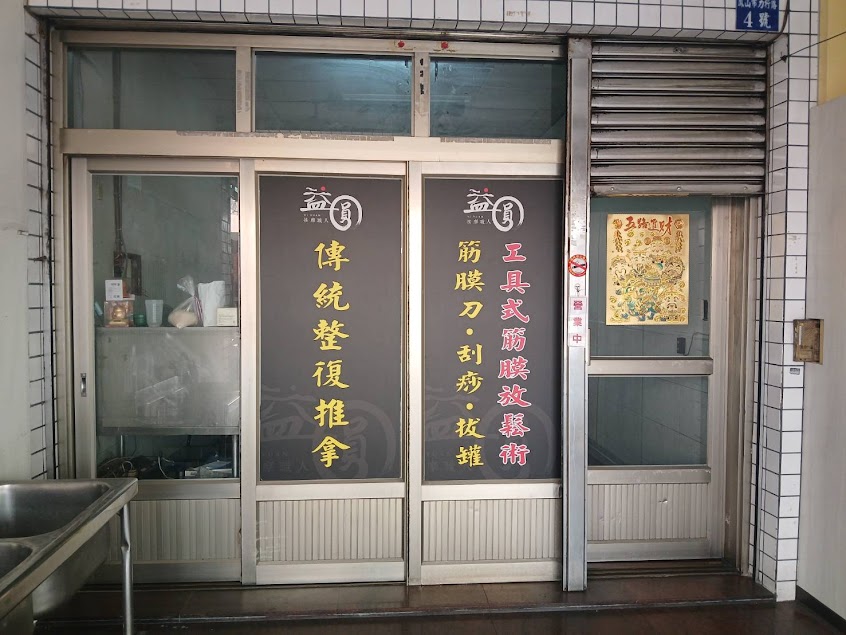 4號
益圓
YI YUAN
傳統整復推拿
益圓
工具式筋膜放鬆術
筋膜刀·刮痧·拔罐
營業中
五路進財